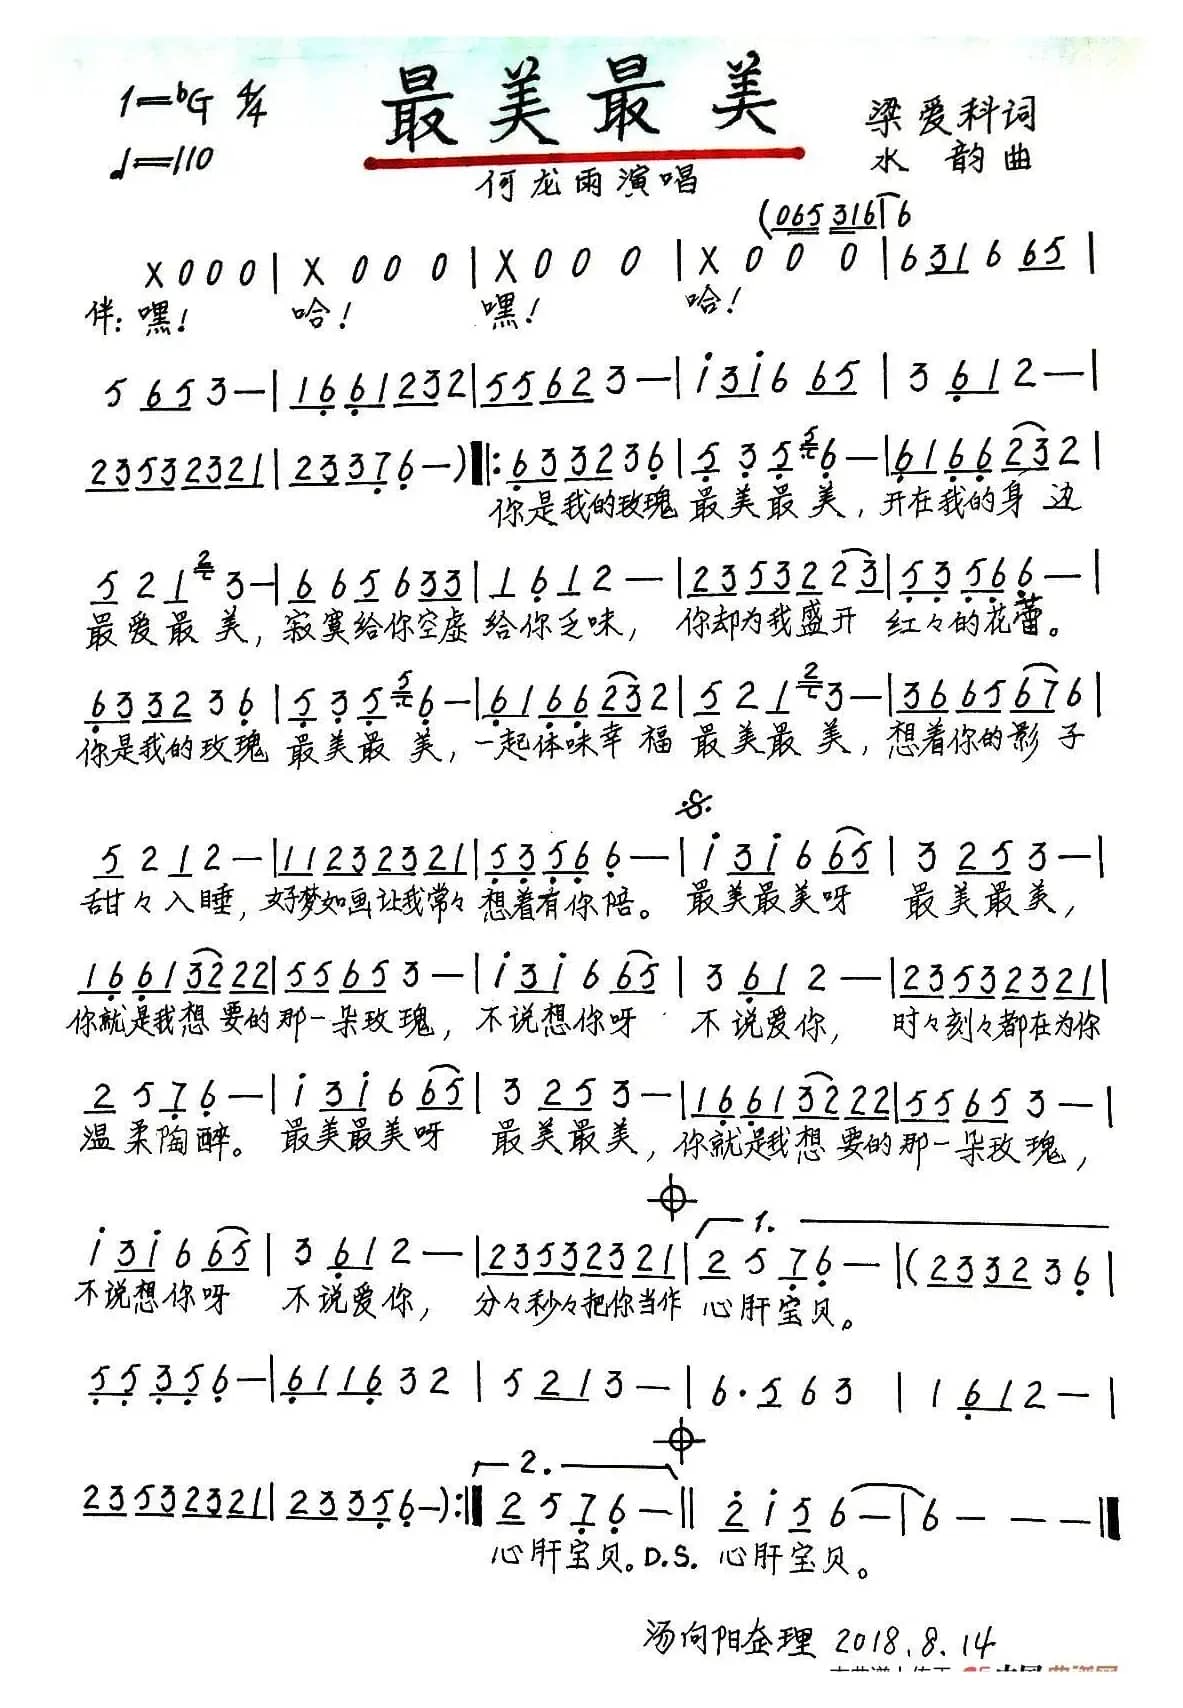 1=bG 4/4
最美最美
梁爱科词
♩=110
水 韵 曲
何龙雨演唱
(065 316 6
X 0 0 0 | X 0 0 0 | X 0 0 0 | X 0 0 0 | 6 31 6 65 |
伴: 嘿! 哈! 嘿! 哈!
5 65 3 — | 16 61 23 2 | 55 62 3 — | i 3i 6 65 | 3 61 2 — |
23 53 23 21 | 23 37 6 — ) ‖: 63 32 3 6 | 5 3 5 5 6 — | 61 66 23 2 |
你是我的玫瑰 最美最美, 开在我的身边
5 2 1 2 3 — | 66 56 33 | 1 61 2 — | 23 53 22 3 | 53 56 6 — |
最爱最美, 寂寞给你空虚 给你乏味, 你却为我盛开 红々的花蕾。
63 32 3 6 | 5 3 5 5 6 — | 61 66 23 2 | 5 2 1 2 3 — | 36 65 67 6 |
你是我的玫瑰 最美最美, 一起体味幸福 最美最美, 想着你的影子
5 2 1 2 — | 11 23 23 21 | 53 56 6 — | i 3i 6 65 | 3 25 3 — |
甜々入睡, 好梦如画让我常々 想着有你陪。 最美最美呀 最美最美,
16 61 32 22 | 55 65 3 — | i 3i 6 65 | 3 61 2 — | 23 53 23 21 |
你就是我想要的那一朵玫瑰, 不说想你呀 不说爱你, 时々刻々都在为你
2 5 7 6 — | i 3i 6 65 | 3 25 3 — | 16 61 32 22 | 55 65 3 — |
温柔陶醉。 最美最美呀 最美最美, 你就是我想要的那一朵玫瑰,
1.
i 3i 6 65 | 3 61 2 — | 23 53 23 21 | 2 5 7 6 — | (23 32 3 6 |
不说想你呀 不说爱你, 分々秒々把你当作 心肝宝贝。
55 35 6 — | 61 16 3 2 | 5 21 3 — | 6· 5 6 3 | 1 61 2 — |
2.
23 53 23 21 | 23 35 6 — ) :‖ 2 5 7 6 — ‖ 2 i 5 6 — | 6 — — — ‖
心肝宝贝。D.S. 心肝宝贝。
汤向阳企理 2018.8.14